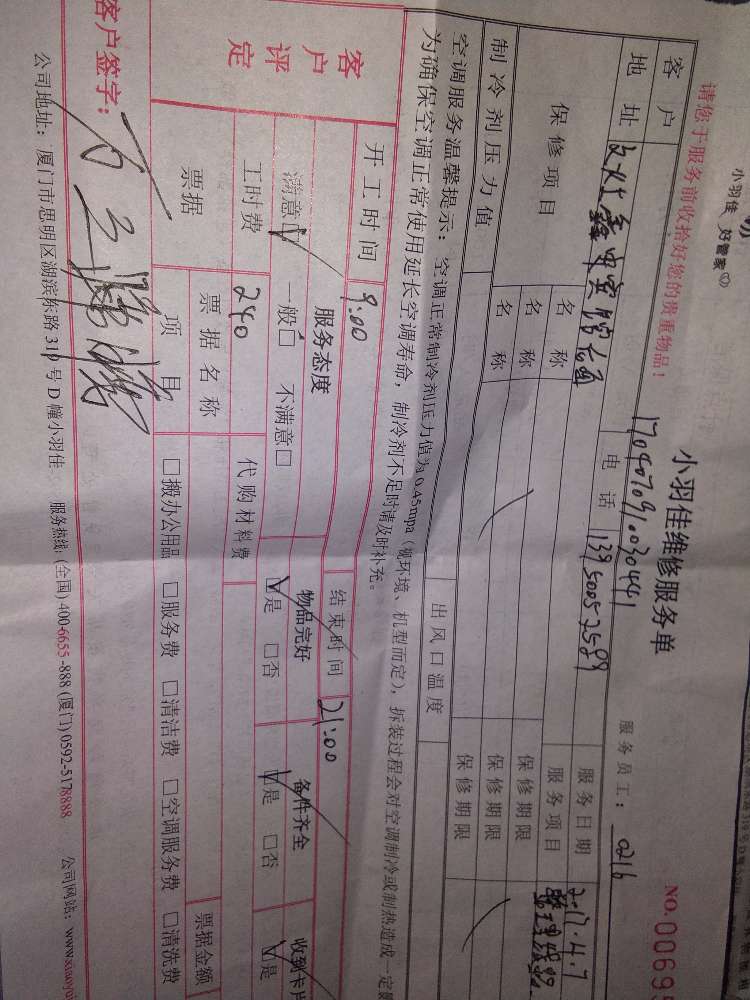 小羽佳 好管家
请您于服务前收拾好您的贵重物品！
小羽佳维修服务单
NO. 0069
17040709100030441
服务员工： 0216
客户
电话 13950052589
服务日期 2017.4.7
地址
服务项目
保修项目
名称
保修期限
名称
保修期限
名称
保修期限
制冷剂压力值
出风口温度
空调服务温馨提示：空调正常制冷剂压力值为0.45mpa（视环境、机型而定），拆装过程会对空调制冷或制热造成一定
为确保空调正常使用延长空调寿命，制冷剂不足时请及时补充。
开工时间 9:00
结束时间 21:00
客户评定
服务态度
物品完好
备件齐全
收到卡片
满意☑ 一般□ 不满意□
☑是 □否
☑是 □否
☑是
工时费 240
代购材料费
票据
票据名称
票据金额
项目
□搬办公用品 □服务费 □清洁费 □空调服务费 □清洗费
客户签字：
公司地址：厦门市思明区湖滨东路319号D幢小羽佳 服务热线：(全国) 400-6655-888 (厦门) 0592-5178888 公司网站：www.xiaoyu